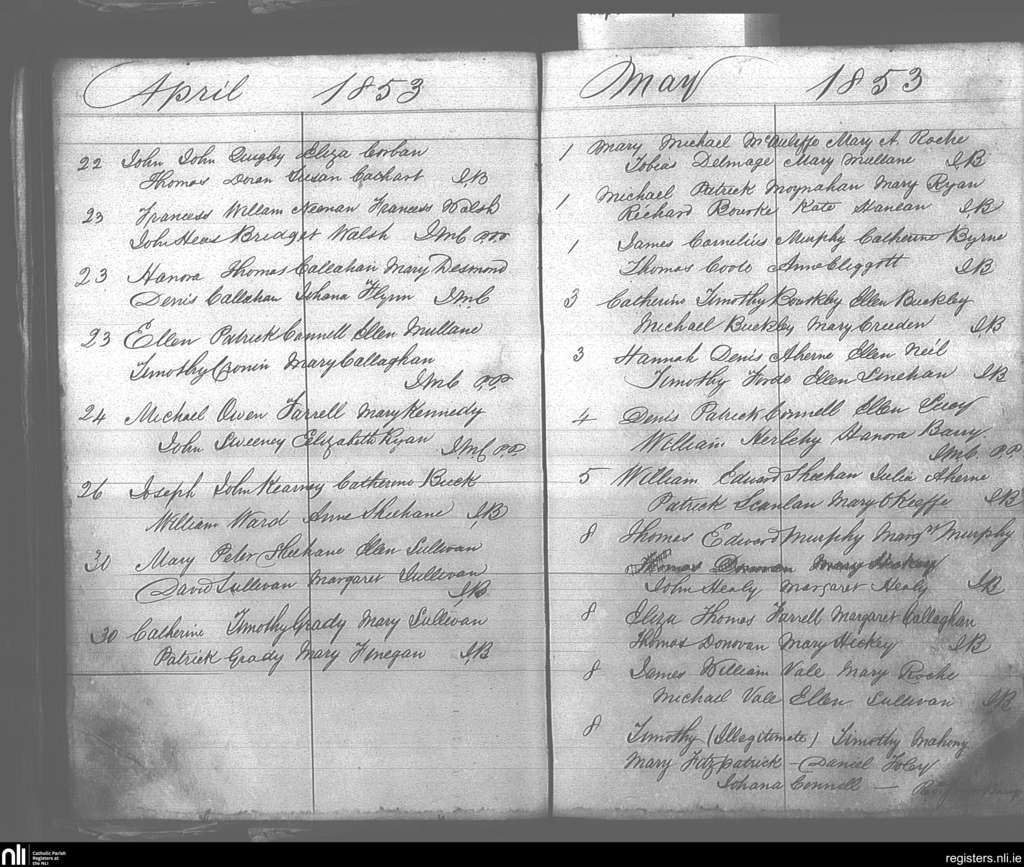 April 1853
22 John John Quigley Eliza Corban
Thomas Doran Susan Cathart J,B
23 Francess Willam Neenan Francess Walsh
John Heas Bridget Walsh J.McC P.P.
23 Hanora Thomas Callahan Mary Desmond
Denis Callahan Johana Flynn J.McC
23 Ellen Patrick Connell Ellen Mullane
Timothy Cronin Mary Callaghan
J.McC P.P.
24 Michael Owen Farrell Mary Kennedy
John Sweeney Elizabeth Ryan J.McC P.P.
26 Joseph John Kearney Catherine Buck
William Ward Anne Sheehane J,B
30 Mary Peter Sheehane Ellen Sullivan
David Sullivan Margaret Sullivan
J,B
30 Catherine Timothy Grady Mary Sullivan
Patrick Grady Mary Finegan J,B
May 1853
1 Mary Michael McAuliffe Mary A. Roche
Tobias Delmage Mary Mullane J,B
1 Michael Patrick Moynahan Mary Ryan
Richard Bourke Kate Hanlan J,B
1 James Cornelius Murphy Catherine Byrne
Thomas Coote Anne Cliggott J,B
3 Catherine Timothy Ellen Buckley
Michael Buckley Mary Creeden J,B
3 Hannah Denis Aherne Ellen Neil
Timothy Forde Ellen Linehan J,B
4 Denis Patrick Connell Ellen Lucy
William Herlehy Hanora Barry
J.McC. P.P.
5 William Edward Sheehan Julia Aherne
Patrick Scanlan Mary O Keeffe J,B
8 Thomas Edward Murphy Margt Murphy
Thomas Donovan Mary Hickey
John Healy Margaret Healy J,B
8 Eliza Thomas Farrell Margaret Callaghan
Thomas Donovan Mary Hickey J,B
8 James William Vale Mary Roche
Michael Vale Ellen Sullivan J,B
8 Timothy (Illegitimate) Timothy Mahony
Mary Fitzpatrick - (Daniel Foley
Johana Connell —
nli Catholic Parish
Registers at
the NLI
registers.nli.ie